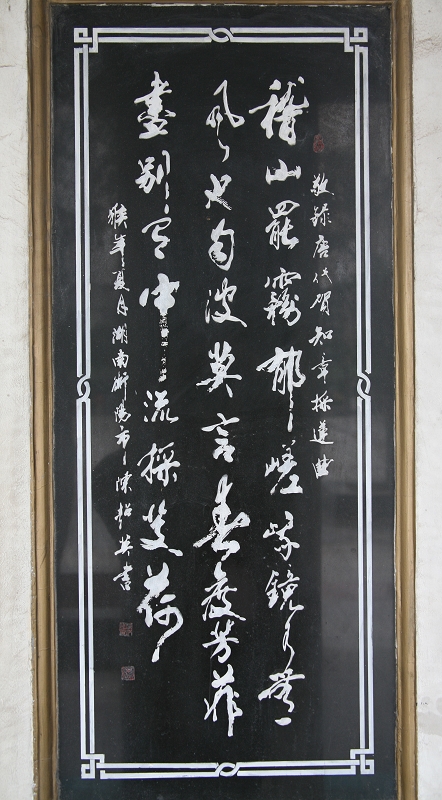 敬録唐代賀知章採蓮曲
稽山罷霧郁嵯峨鏡水無
風也自波莫言春度芳菲
盡別有中流採芰荷
猴年夏月湖南衡陽市陳英書